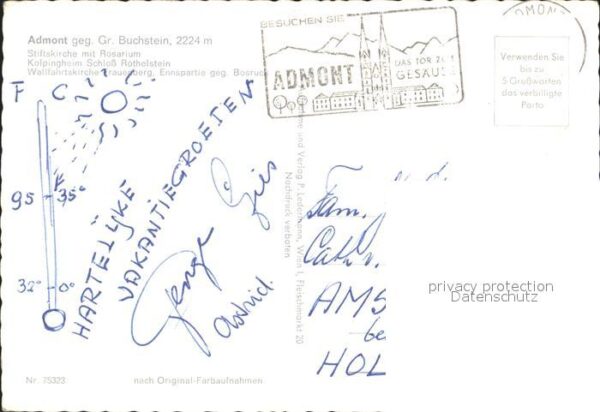 Admont geg. Gr. Buchstein, 2224 m
Stiftskirche mit Rosarium
Kolpingheim Schloß Röthelstein
Wallfahrtskirche Frauenberg, Ennspartie geg. Bosruck
BESUCHEN SIE
ADMONT
DAS TOR ZUM
GESÄUSE
Verwenden Sie
bis zu
5 Grußworten
das verbilligte
Porto
F C
95 35°
32° 0°
HARTELIJKE
VAKANTIEGROETEN
Astrid.
und Verlag P. Ledermann, Wien I, Fleischmarkt 20
Nachdruck verboten
Fam.
AMS
HOL
privacy protection
Datenschutz
Nr. 75323
nach Original-Farbaufnahmen